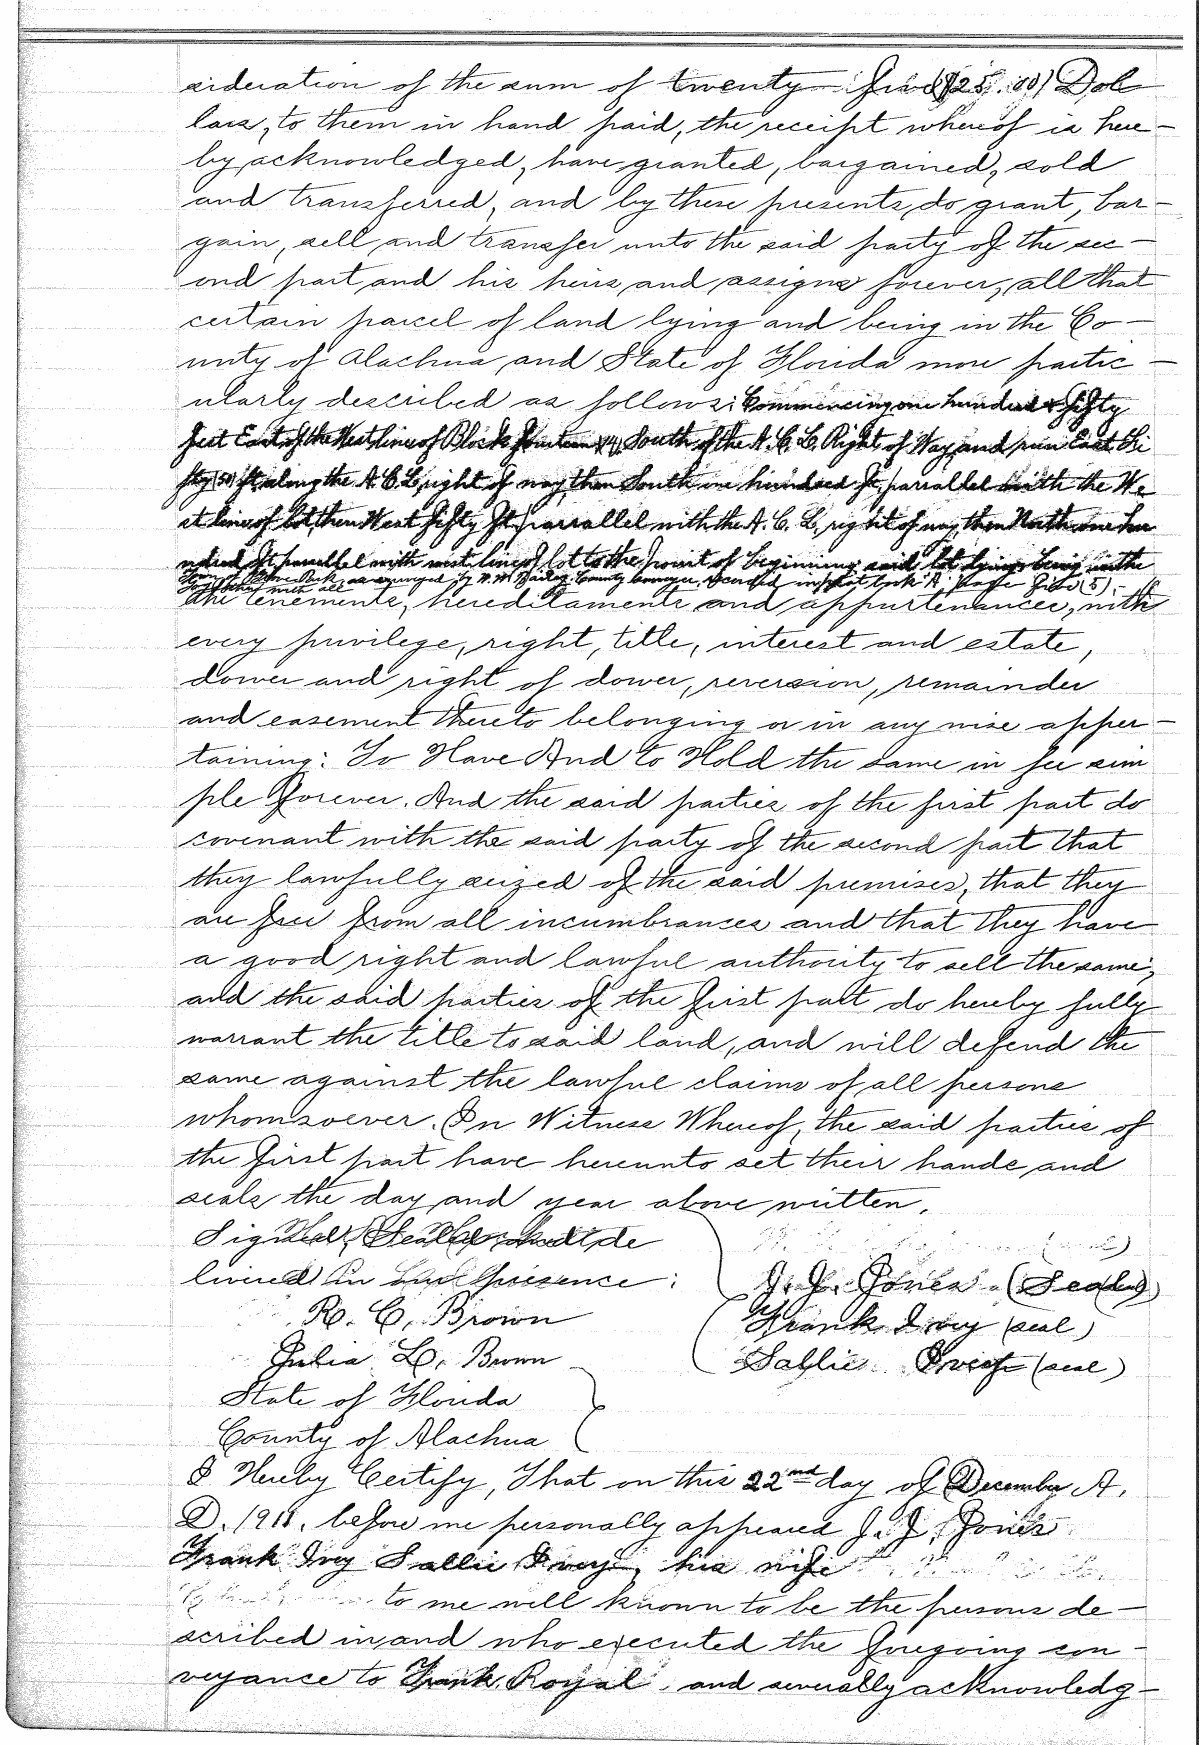 sideration of the sum of twenty-five ($25.00) Dol
lars, to them in hand paid, the receipt whereof is here-
by acknowledged, have granted, bargained, sold
and transferred, and by these presents, do grant, bar-
gain, sell, and transfer unto the said party of the sec-
ond part, and his heirs and assigns forever, all that
certain parcel of land lying and being in the Co-
unty of Alachua, and State of Florida more partic-
ularly described as follows: Commencing one hundred & fifty
feet East of the West line of Block fourteen (14) South of the A. C. L. Right of Way, and run East fi
fty (50) ft along the A. C. L. right of way, then South one hundred ft, parrallel with the We
st line of lot, then West fifty ft, parrallel with the A. C. L. right of way, then North one hu
ndred ft. parallel with west line of lot to the point of beginning said lot lying & being in the
Town of as surveyed by County Surveyor, recorded in plat book "A" page five (5).
Together with all
the tenements, hereditaments and appurtenances, with
every privilege, right, title, interest and estate,
dower and right of dower, reversion, remainder
and easement thereto belonging or in any wise apper-
taining: To Have And to Hold the same in fee sim
ple forever. And the said parties of the first part do
covenant with the said party of the second part that
they lawfully seized of the said premises, that they
are free from all incumbrances and that they have
a good right and lawful authority to sell the same,
and the said parties of the first part do hereby fully
warrant the title to said land, and will defend the
same against the lawful claims of all persons
whomsoever. In Witness Whereof, the said parties of
the first part have hereunto set their hands and
seals the day and year above written.
Signed, Sealed and de
livered in our presence:
J. J. Jones (Seal)
R. C. Brown
Frank Ivey (seal)
Julia L. Brown
Sallie Ivey (seal)
State of Florida
County of Alachua
I Hereby Certify, That on this 22nd day of December A.
D. 1918, before me personally appeared J. J. Jones
Frank Ivey Sallie Ivey, his wife
to me well known to be the persons de-
scribed in, and who executed the foregoing con-
veyance to Frank Royal, and severally acknowledg-